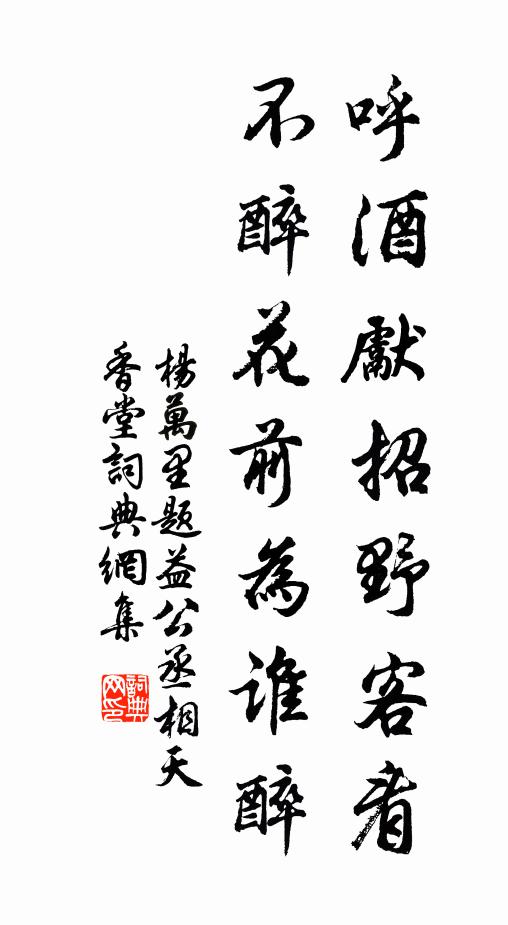 呼酒獻招野客看
不醉花前為誰醉
楊萬里題益公丞相天
香堂詞典網集
詞典
网印